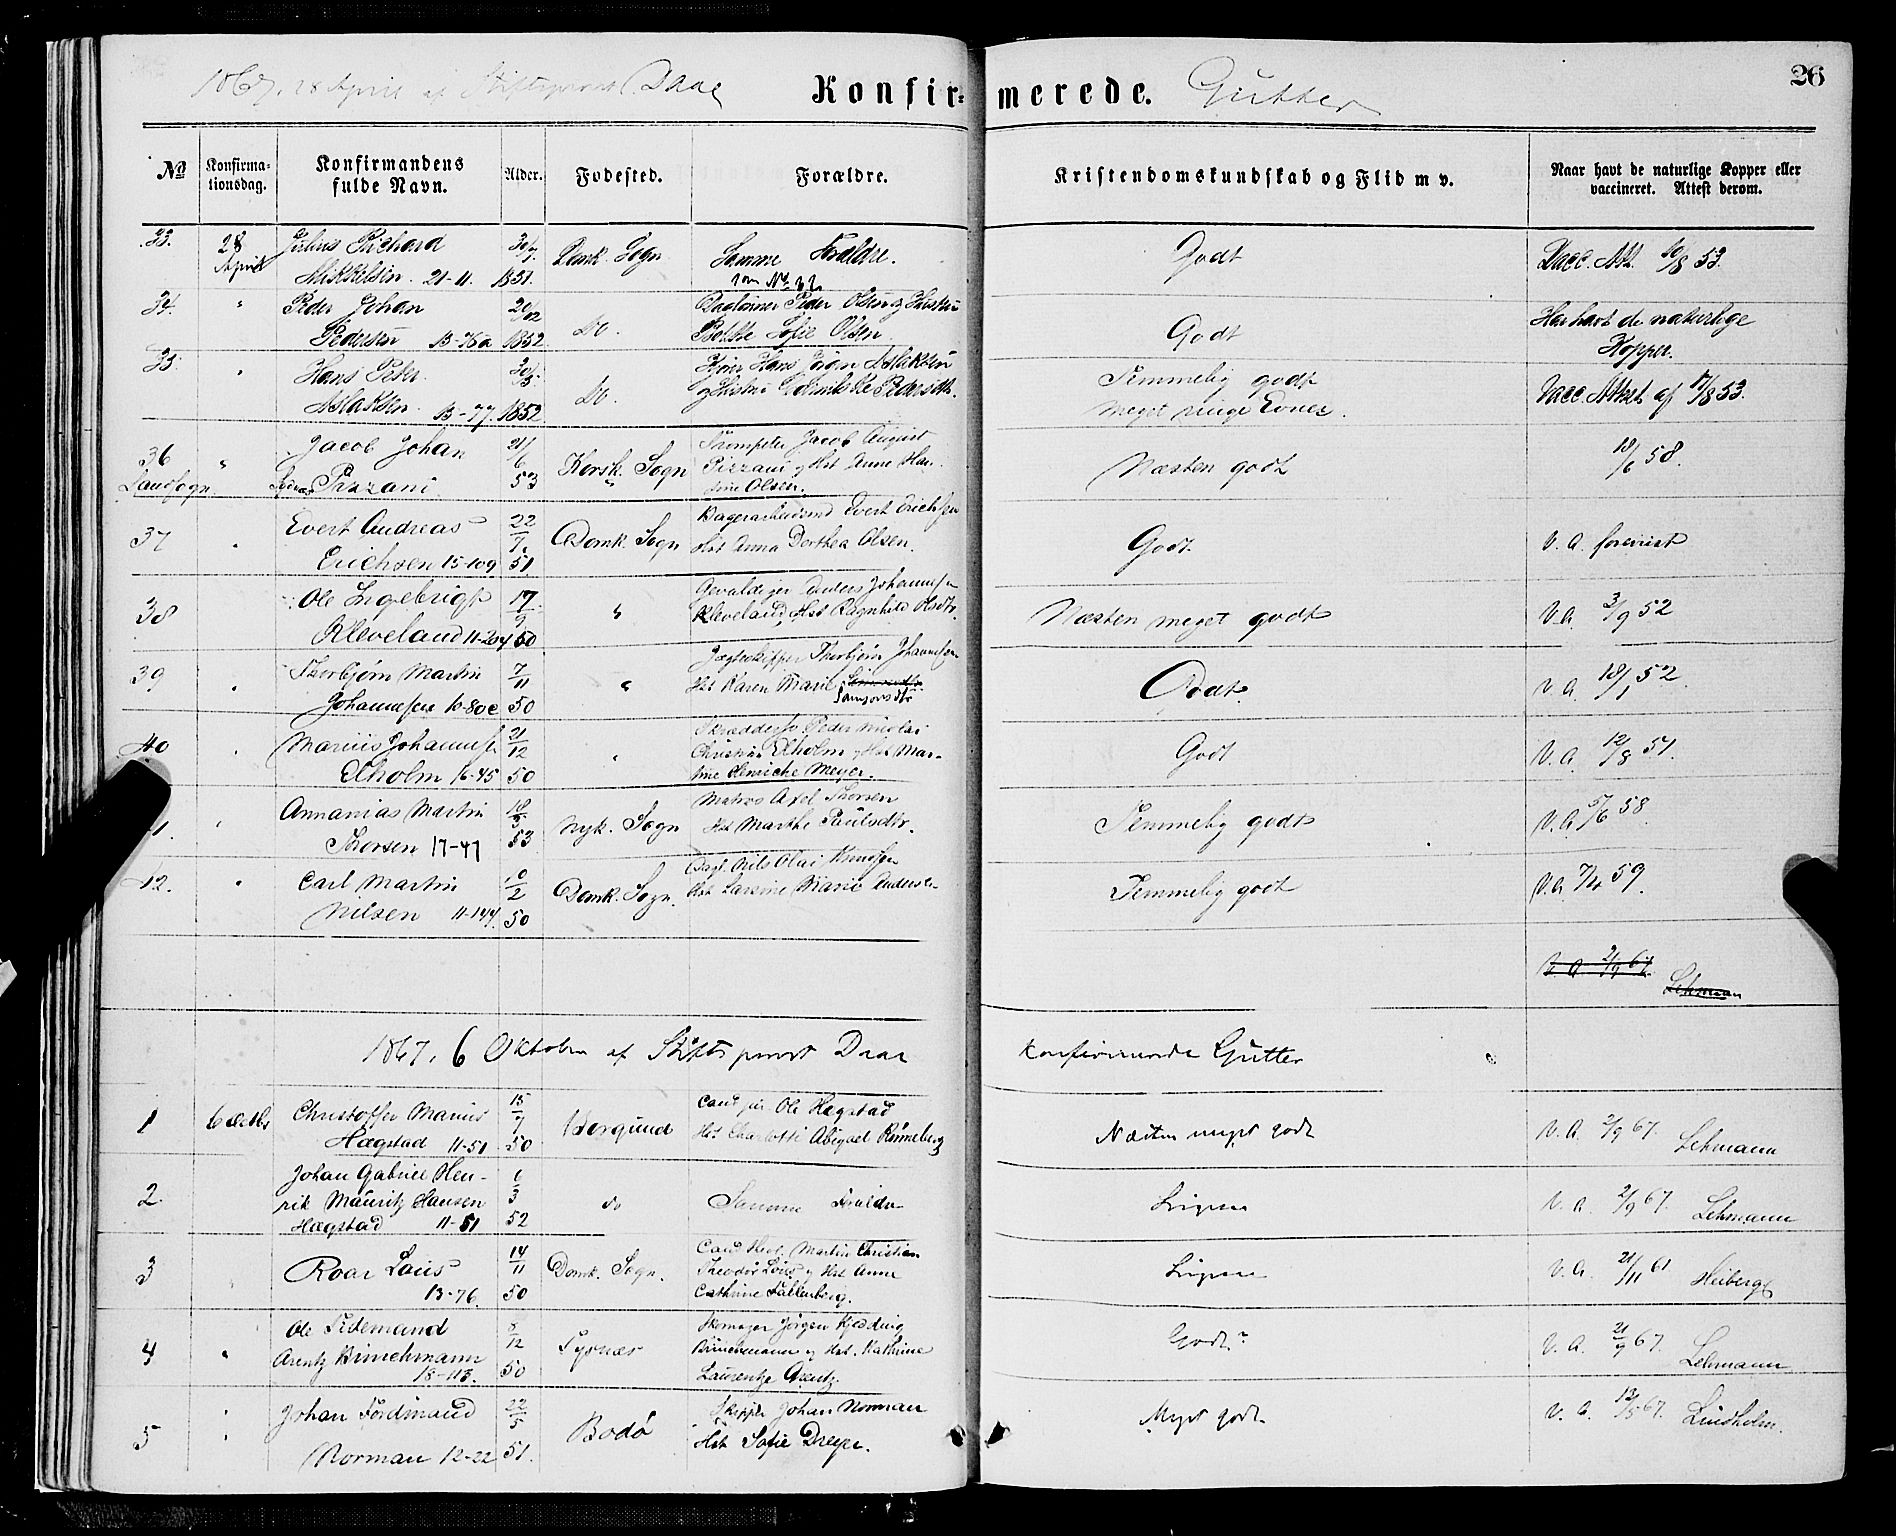 1867. 28 April af Stiftsprovst Daae Konfir=merede. Gutter 26
No Konfirma-tionsdag. Konfirmandens fulde Navn. Alder. Fødested. Forældre. Kristendomskundskab og Flid m v. Naar havt de naturlige Kopper eller vaccineret. Attest derom.
33. 28 April Julius Richard Domk. Sogn Samme Forældre. Godt Vacc. Att. 10/8 53.
Mikkelsen. 21-11. 1851. som No 32.
34. " Peder Johan 20/12 Daglønner Peder Olsen og Hustru Har havt de naturlige
Pedersen 13-76a 1852 Do. Sofie Olsen Godt Kopper.
35 " Hans Peter Hans Jørgen Aslaksen Temmelig godt Vacc. Attest af 17/8 53.
Aslaksen. 13-77 1852 Do. Pedersdtr. Meget ringe Evner.
36 " Jacob Johan 21/6 Korsk. Sogn Trompeter Jacob August Næsten godt 18/6 58.
Landsogn Pizzani. 53 Pizzani og Hst Anne Han-
sine Olsen.
37 " Evert Andreas 22/7 Domk. Sogn Evert Erichsen Godt. V. A. forevist
Erichsen 15-109 51. Hst Anna Dorthea Olsen.
38 Ole Ingebrigt 17/9 " Gevaldiger Anders Johannesen Næsten meget godt V.A. 3/9 52
Kleveland 11-204 50 Kleveland, Hst Ragnhild Olsdtr.
39 " Thorbjørn Martin 7/11 " Jægteskipper Thorbjørn Johannesen Godt. V. A. 18/1 52.
Johannesen 10-80c 50 Hst Karen Marie Samsonsdtr
40 " Marius Johannes 21/12 " Peder Nicolai Godt V. A. 12/8 51.
Elholm 16-45 50 Christian Elholm og Hst Mar-
tine Henriche Meyer.
41. " Annanias Martin 18/3 Nyk. Sogn Matros Axel Thorsen Temmelig godt V. A. 5/6 58.
Thorsen 17-47 53 Hst Marthe Paulsdtr.
42. " Carl Martin 10/2 Domk. Sogn. Dagl. Nils Olai Knudsen Temmelig godt V.A. 7/4 59.
Nilsen 11-144. 50 Hst Larsine Marie Anders-
V. A. 2/9 67. Lehmann
1867. 6 Oktober af Stiftsprovst Daae konfirmerede Gutter
1 6 Octbr Christoffer Marius 15/7 Borgund Cand jur Ole Hægstad Næsten meget godt V. A. 2/9 67 Lehmann
Hægstad 11-51 50 Hst Charlotte Abigael Rønneberg
2. Johan Gabriel Hen- 6/3 do Samme Forældre Ligesaa V. A. 2/9 67. Lehmann
rik Mauritz Hansen
Hægstad 11-51 52
3 " Roar Lous 14/11 Domk. Sogn. Cand theol. Martin Christian Ligesaa V. A. 21/11 61 Heiberg
13-76. 50 Theodor Lous og Hst Anne
Cathrine Fallenberg.
4 " Ole Tidemand 8/12 Tysnæs Skomager Jørgen Kjedding Godt V. A. 21/9 67. Lehmann
Arentz Binnchmann og Hst. Kathrine
18-113. 50 Laurentze Arentz.
5 " Johan Ferdinand 22/5 Bodø Skipper Johan Norman Meget godt V. A. 13/5 67. Lindholm.
Norman 12-22 51. Hst Sofie Dreyer.